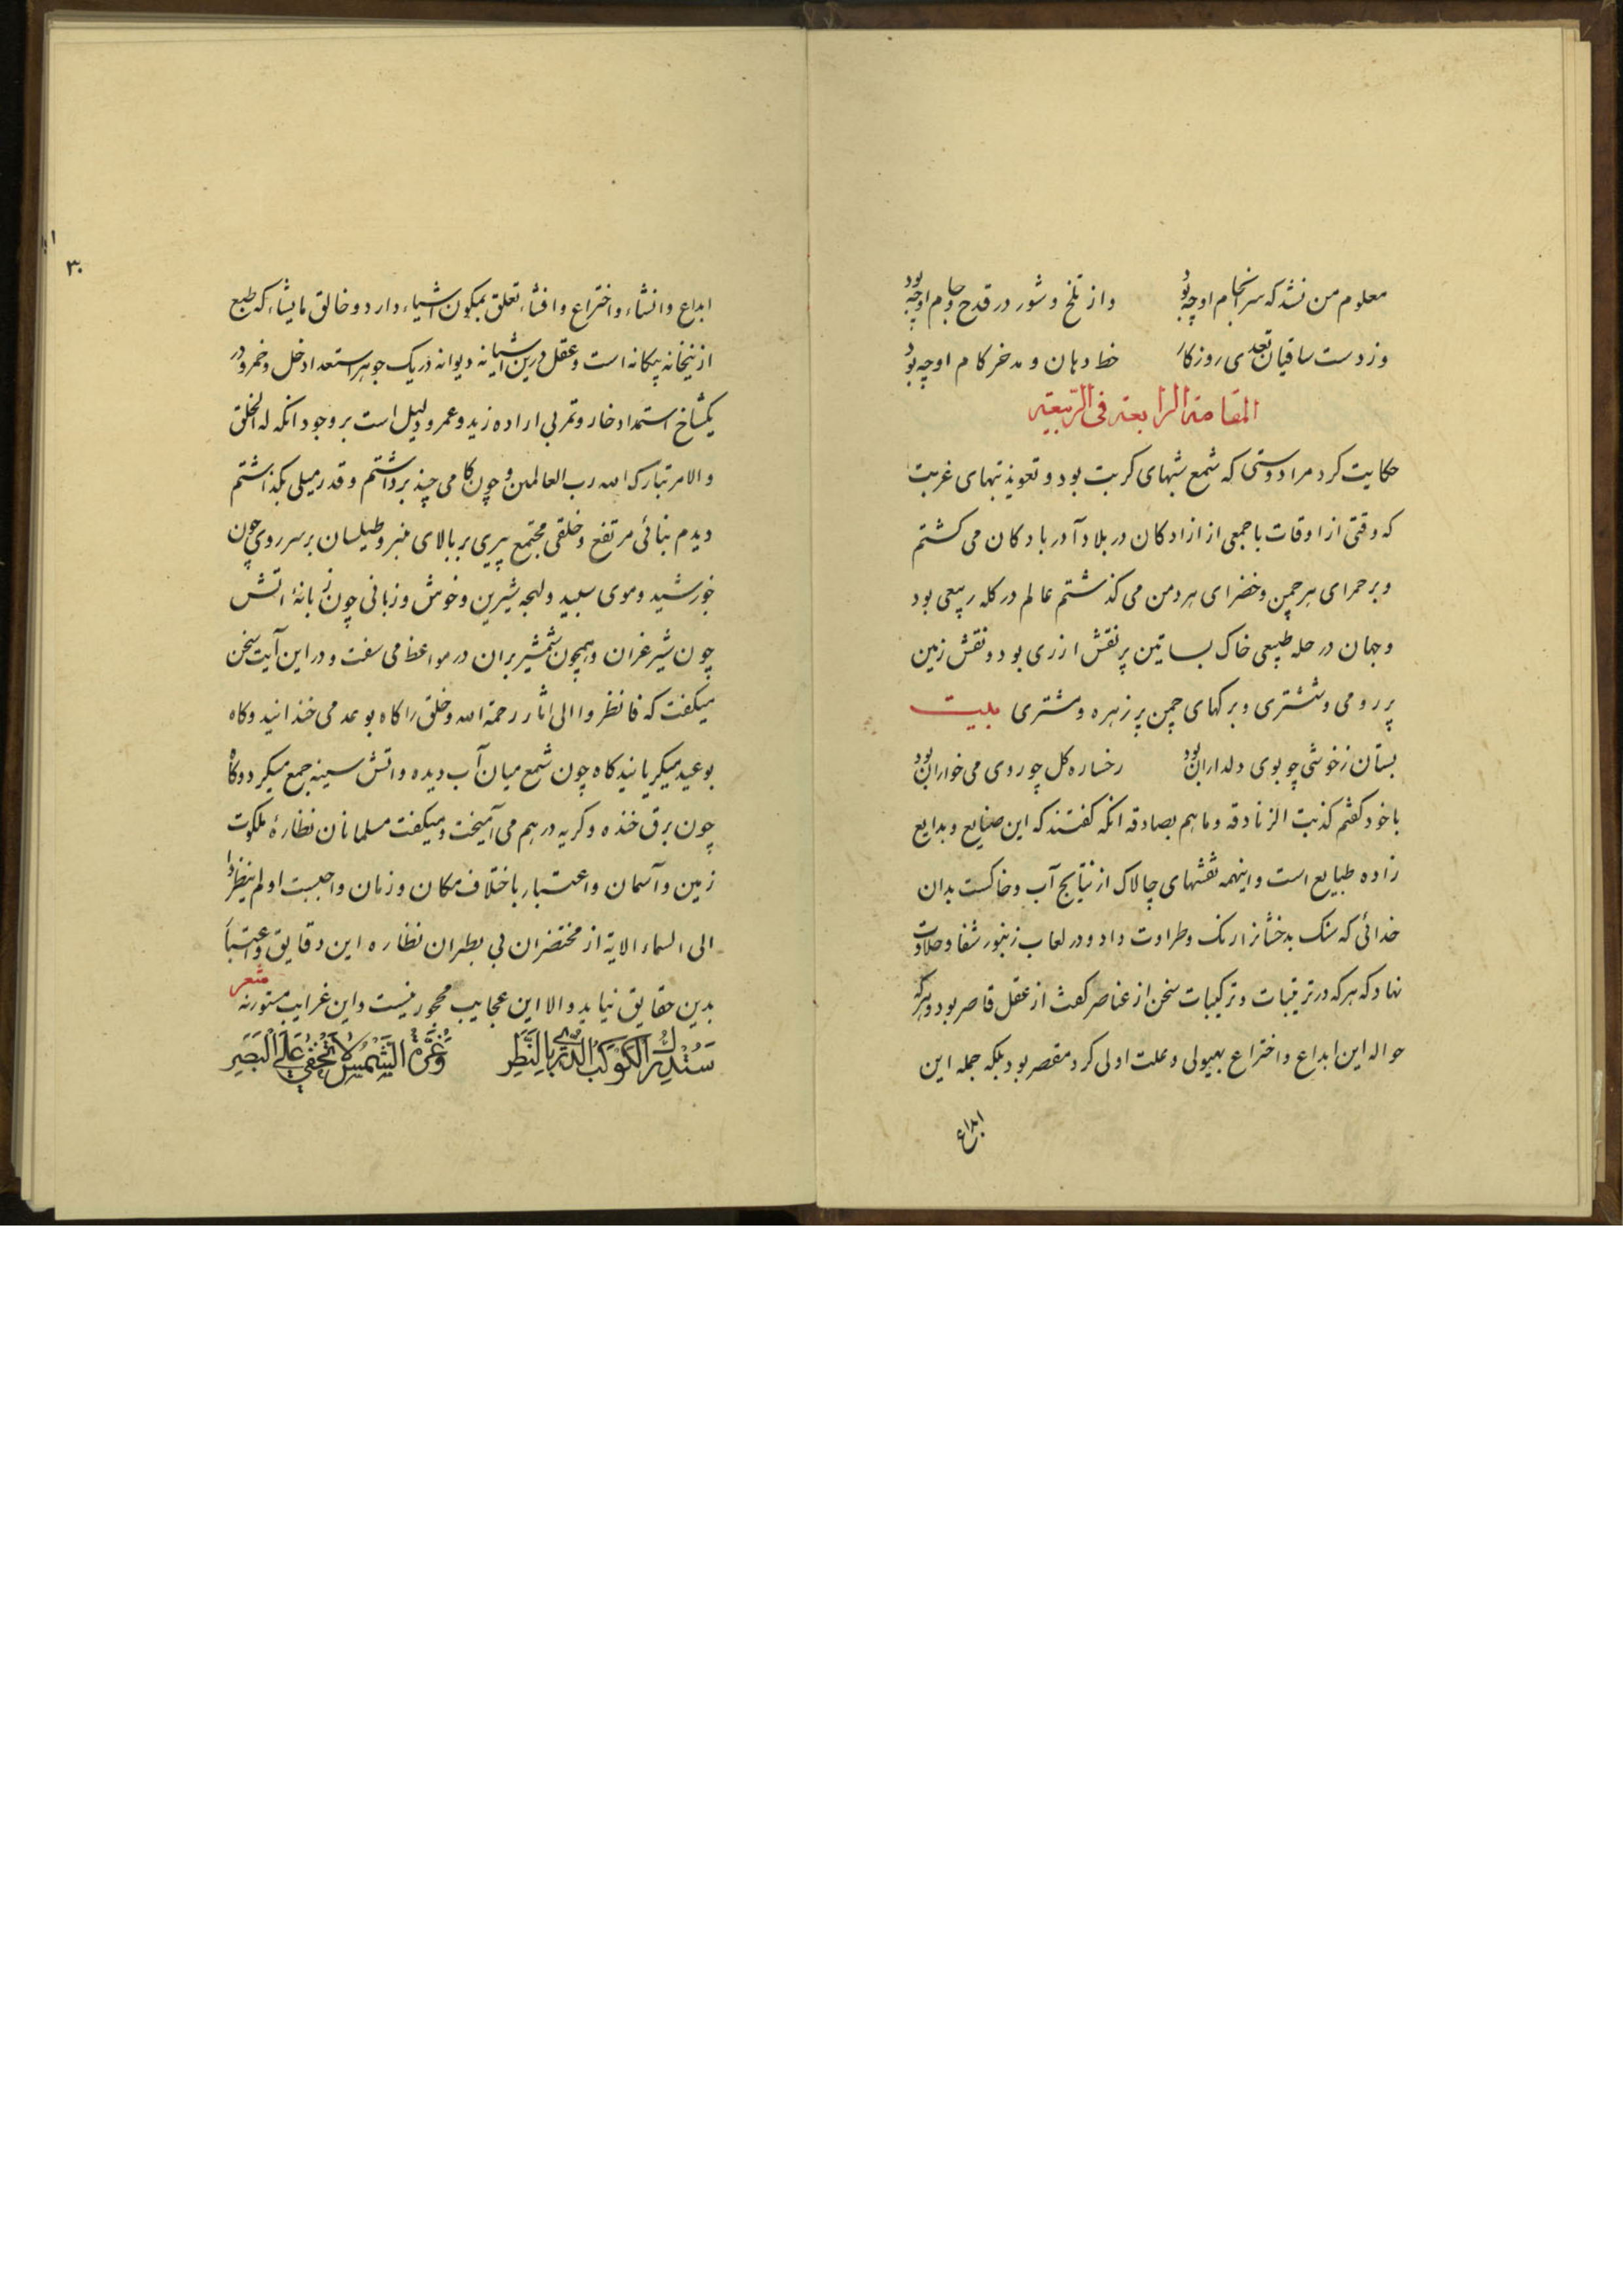 معلوم من نشد که سرانجام او چه بود واز تلخ و شور در قدح و جام او چه بود
وز دست ساقیان تعدی روزکار خط دهان و مدخر کام او چه بود
المقامة الرابعة فی الربیعیة
حکایت کرد مرا دوستی که شمع شبهای کربت بود و تعویذ تبهای غربت
که وقتی از اوقات با جمعی از ازادکان در بلاد آدربادکان می کشتم
و بر حمرای هر چمن و خضرای هر دمن می کذشتم عالم در کله ربیعی بود
و جهان در حله طبیعی خاک بساتین پر نقش ازری بود و نقش زمین
پر رومی و ششتری و برکهای چمن پر زهره و مشتری بیت
بستان ز خوشی چو بوی دلداران بود رخساره کل چو روی می خواران بود
با خود کفتم کذبت الزنادقه و ما هم بصادقه انکه کفتند که این صنایع و بدایع
زاده طبایع است و اینهمه نقشهای چالاک از نتایج آب و خاکست بدان
خدائی که سنک بدخشانرا رنک و طراوت داد و در لعاب زنبور شفا و حلاوت
نهاد که هر که در ترتیبات و ترکیبات سخن از عناصر کفت از عقل قاصر بود و هر که
حواله این ابداع و اختراع بهیولی و علت اولی کرد مقصر بود بلکه جمله این
ابداع
۳۰
ابداع و انشاء و اختراع و افشاء تعلق بمکون اشیاء دارد و خالق ما یشاء که طبع
ازینخانه بیکانه است و عقل درین اشیانه دیوانه در یک جوهر استعداد خل و خمر و در
یکشاخ استمداد خار و تمر بی اراده زید و عمرو دلیل است بر وجود انکه له الخلق
والامر تبارک الله رب العالمین و چون کامی چند برداشتم و قدر میلی بکذاشتم
دیدم بنائی مرتفع و خلقی مجتمع پیری بر بالای منبر و طیلسان بر سر روی چون
خورشید و موی سپید و لهجه شیرین و خوش و زبانی چون زبانهٔ اتش
چون شیر غران و همچون شمشیر بران در مواعظ می سفت و در این آیت سخن
میکفت که فانظروا الی اثار رحمة الله و خلق را کاه بوعد می خندانید و کاه
بوعید میکریانید کاه چون شمع میان آب دیده و اتش سینه جمع میکرد و کاه
چون برق خنده و کریه در هم می آمیخت و میکفت مسلمانان نظارهٔ ملکوت
زمین و آسمان و اعتبار باختلاف مکان و زمان واجبست اولم ینظروا
الی السماء الایة از مختصران بی بطران نظاره این دقایق و اعتبار
بدین حقایق نیاید و الا این عجایب مهجور نیست و این غرایب مستور نه شعر
سَتُدرِکُ الکَوکَبَ الدُّرِّیَّ بِالنَّظَرِ وَغُرَّةُ الشَّمسِ لا تَخفی عَلَی البَصَرِ